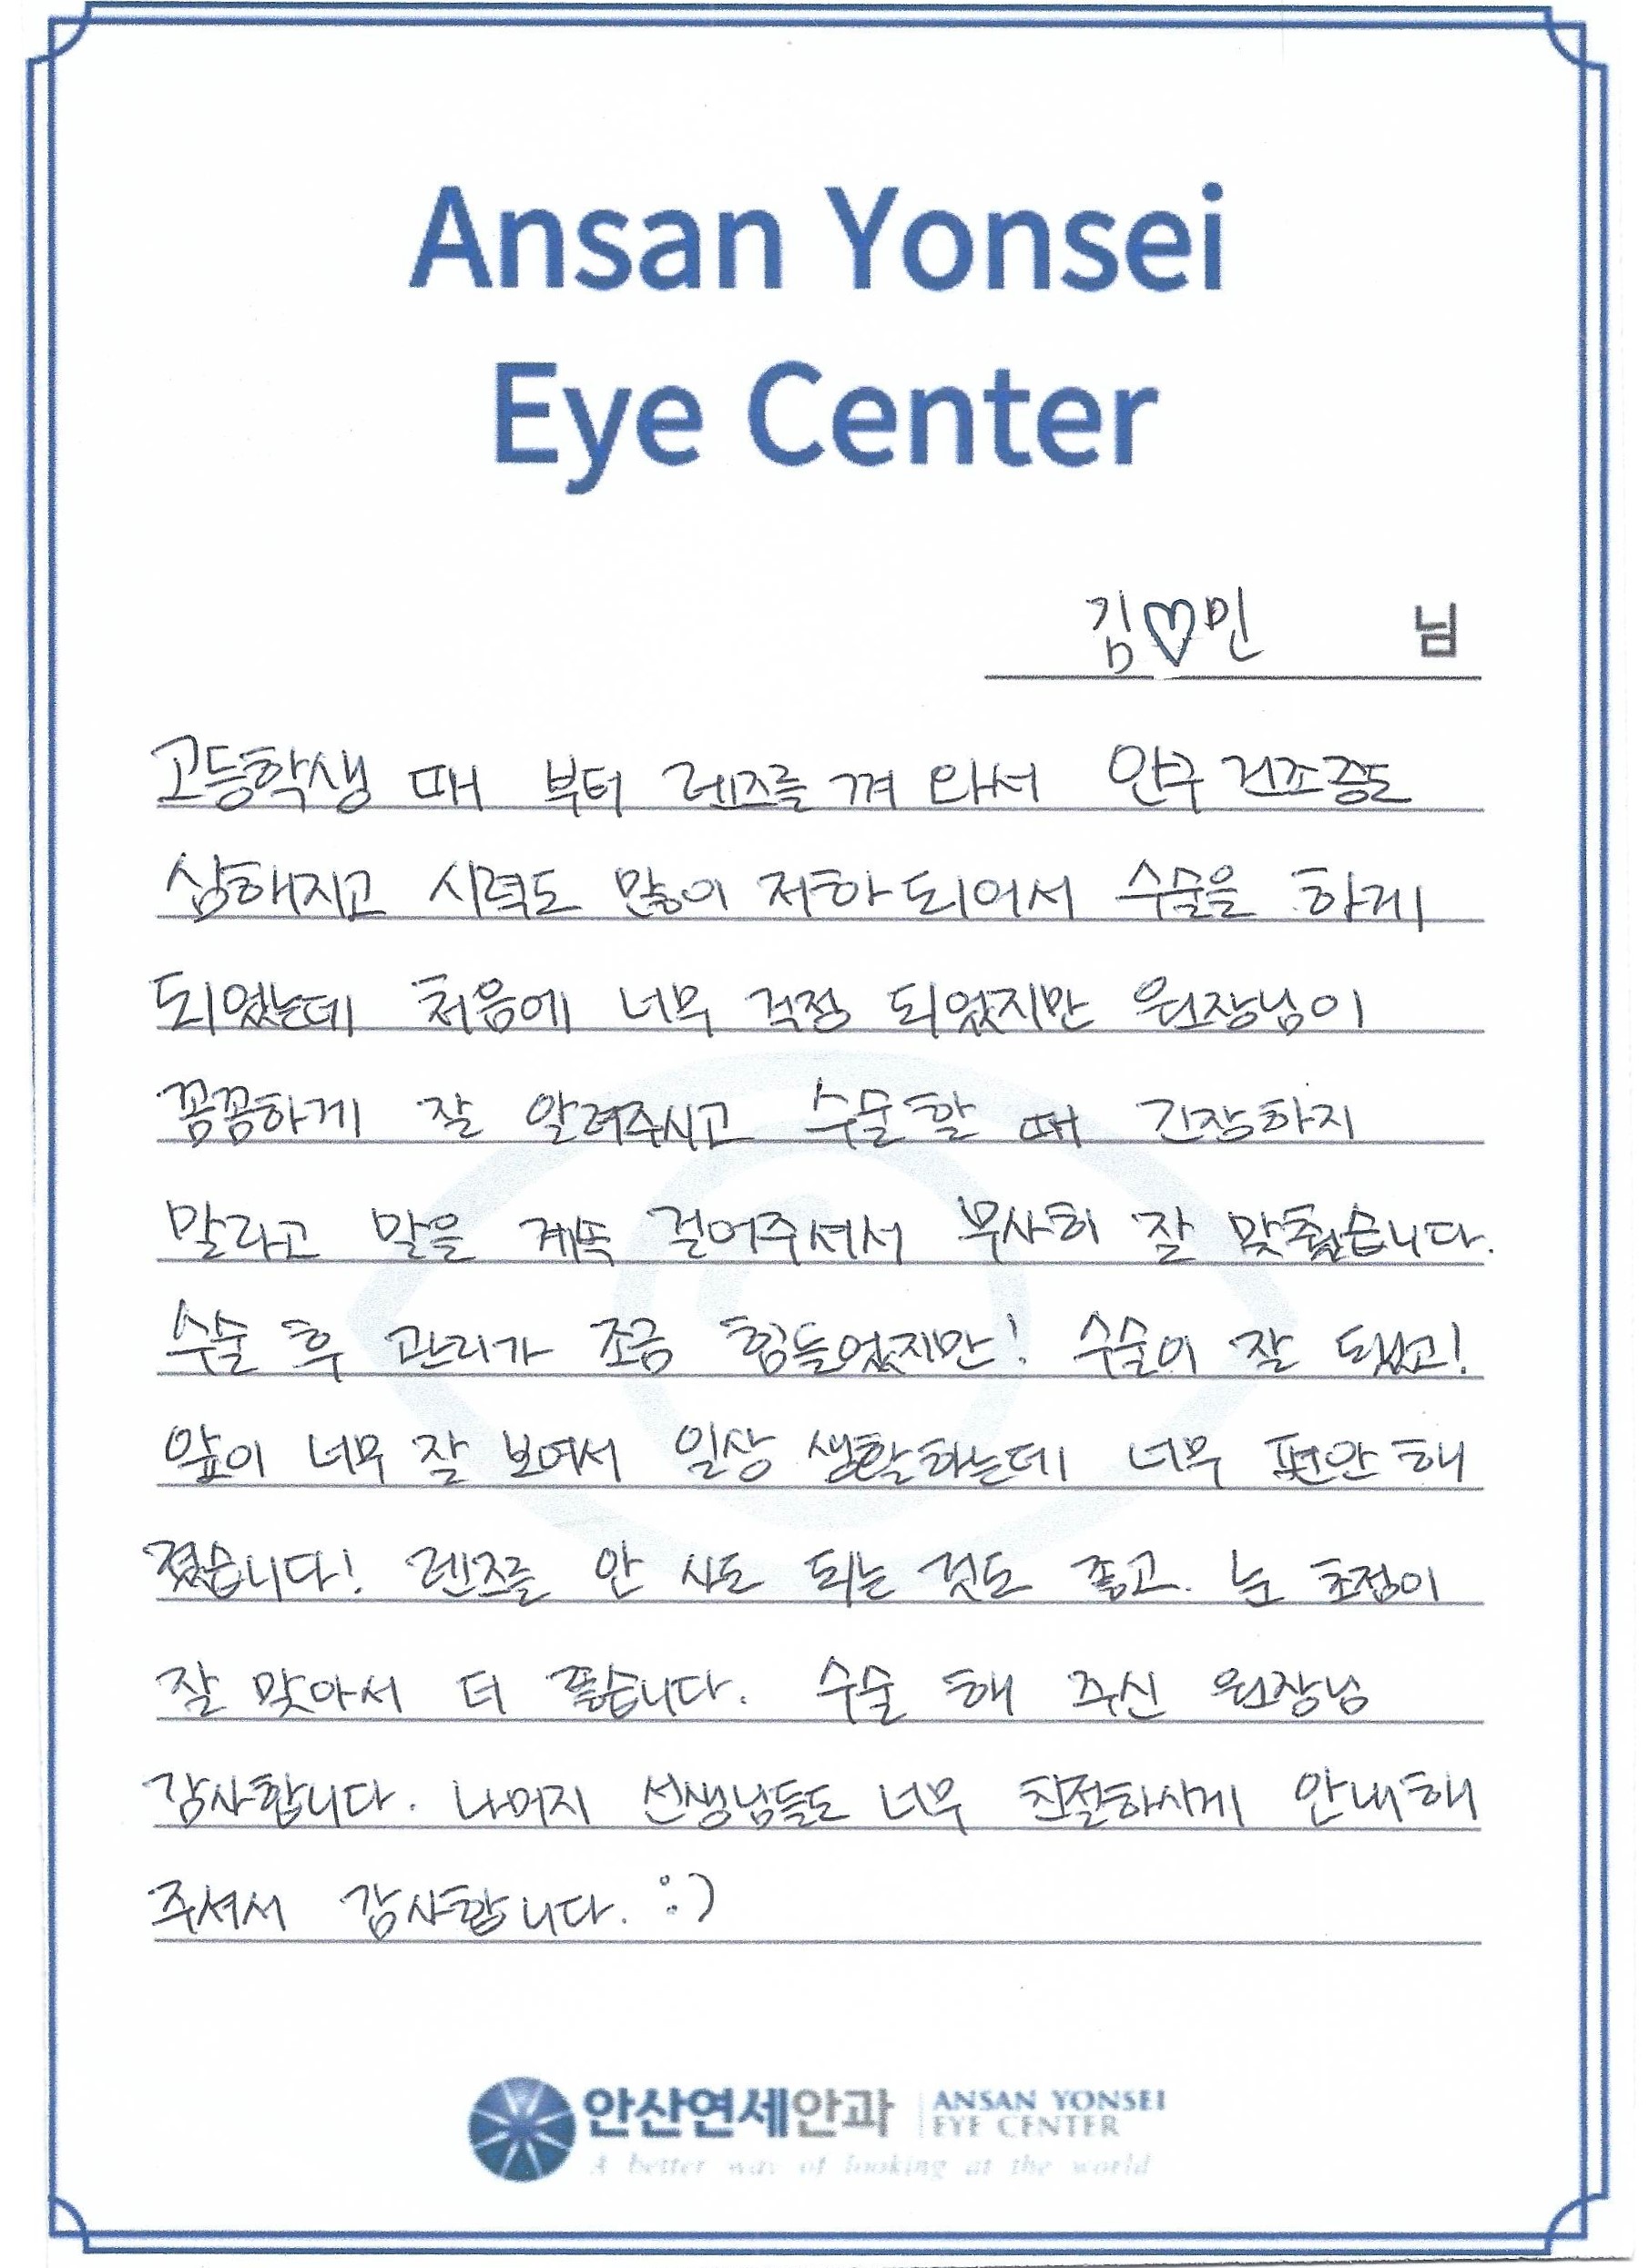 Ansan Yonsei
Eye Center
김♡민 님
고등학생 때 부터 렌즈를 껴 와서 안구 건조증도
심해지고 시력도 많이 저하 되어서 수술을 하게
되였는데 처음에 너무 걱정 되었지만 원장님이
꼼꼼하게 잘 알려주시고 수술 할 때 긴장하지
말라고 말을 계속 걸어주셔서 무사히 잘 맞췄습니다.
수술 후 관리가 조금 힘들었지만! 수술이 잘 됬고!
앞이 너무 잘 보여서 일상 생활하는데 너무 편안 해
졌습니다! 렌즈를 안 사도 되는 것도 좋고. 눈 초점이
잘 맞아서 더 좋습니다. 수술 해 주신 원장님
감사합니다. 나머지 선생님들도 너무 친절하시게 안내해
주셔서 감사합니다. :)
안산연세안과 ANSAN YONSEI
EYE CENTER
A better way of looking at the world